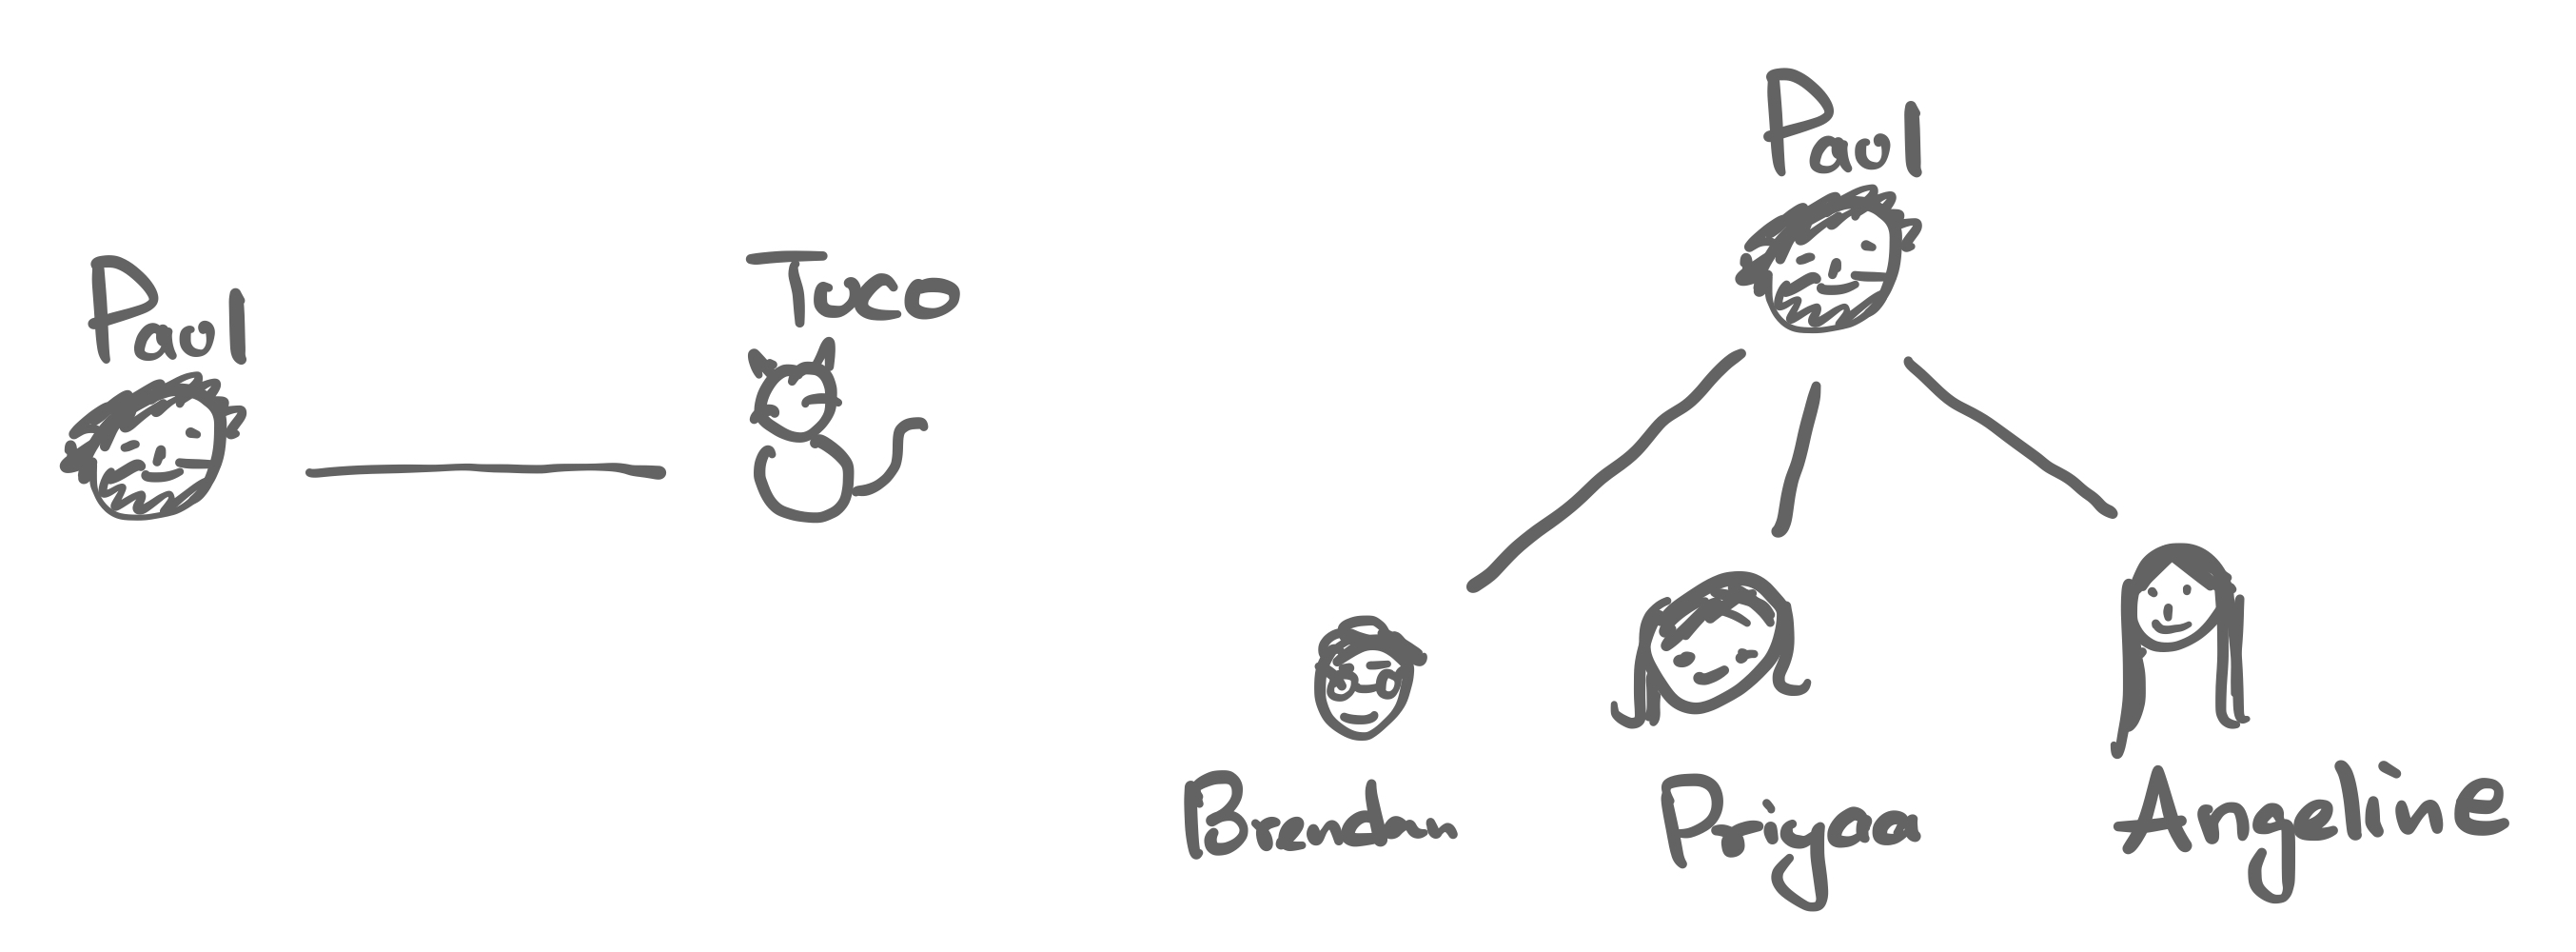 Paul
Tuco
Paul
Brendan
Priyaa
Angeline